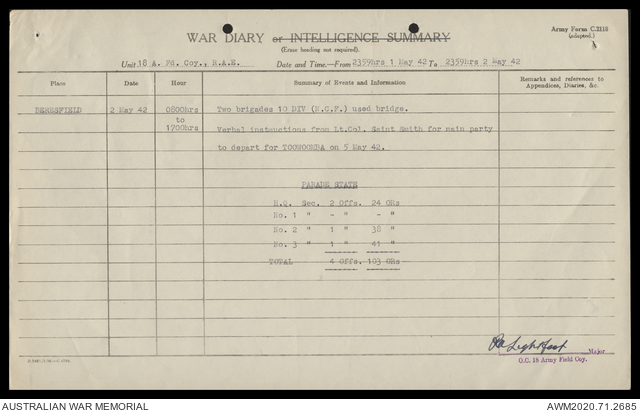 Army Form C.2118
(adapted.)
WAR DIARY or INTELLIGENCE SUMMARY
(Erase heading not required).
Unit 18 A. Fd. Coy., R.A.E. Date and Time.—From 2359hrs 1 May 42 To 2359hrs 2 May 42
Place Date Hour Summary of Events and Information Remarks and references to Appendices, Diaries, &c.
BERESFIELD 2 May 42 0800hrs to 1700hrs Two brigades 10 DIV (N.C.F.) used bridge.
Verbal instructions from Lt.Col. Saint Smith for main party
to depart for TOOWOOMBA on 5 May 42.
PARADE STATE
H.Q. Sec. 2 Offs. 24 ORs
No. 1 " - " - "
No. 2 " 1 " 38 "
No. 3 " 1 " 41 "
TOTAL 4 Offs. 103 ORs
Lightfoot Major
O.C. 18 Army Field Coy.
AUSTRALIAN WAR MEMORIAL AWM2020.71.2685